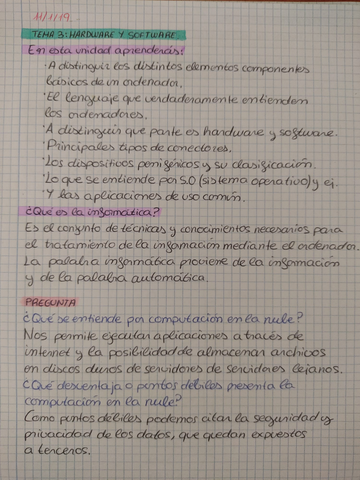 11/1/19
TEMA 3: HARDWARE Y SOFTWARE
En esta unidad aprenderás:
·A distinguir los distintos elementos componentes
básicos de un ordenador.
·El lenguaje que verdaderamente entienden
los ordenadores.
·A distinguir que parte es hardware y software.
·Principales tipos de conectores.
·Los dispositivos periféricos y su clasificación.
·Lo que se entiende por S.O (sistema operativo) y ej.
·Y las aplicaciones de uso común.
¿Qué es la informática?
Es el conjunto de técnicas y conocimientos necesarios para
el tratamiento de la información mediante el ordenador.
La palabra informática proviene de la información
y de la palabra automática.
PREGUNTA
¿Qué se entiende por computación en la nube?
Nos permite ejecutar aplicaciones a través de
internet y la posibilidad de almacenar archivos
en discos duros de servidores de servidores lejanos.
¿Qué desventaja o puntos débiles presenta la
computación en la nube?
Como puntos débiles podemos citar la seguridad y
privacidad de los datos, que quedan expuestos
a terceros.